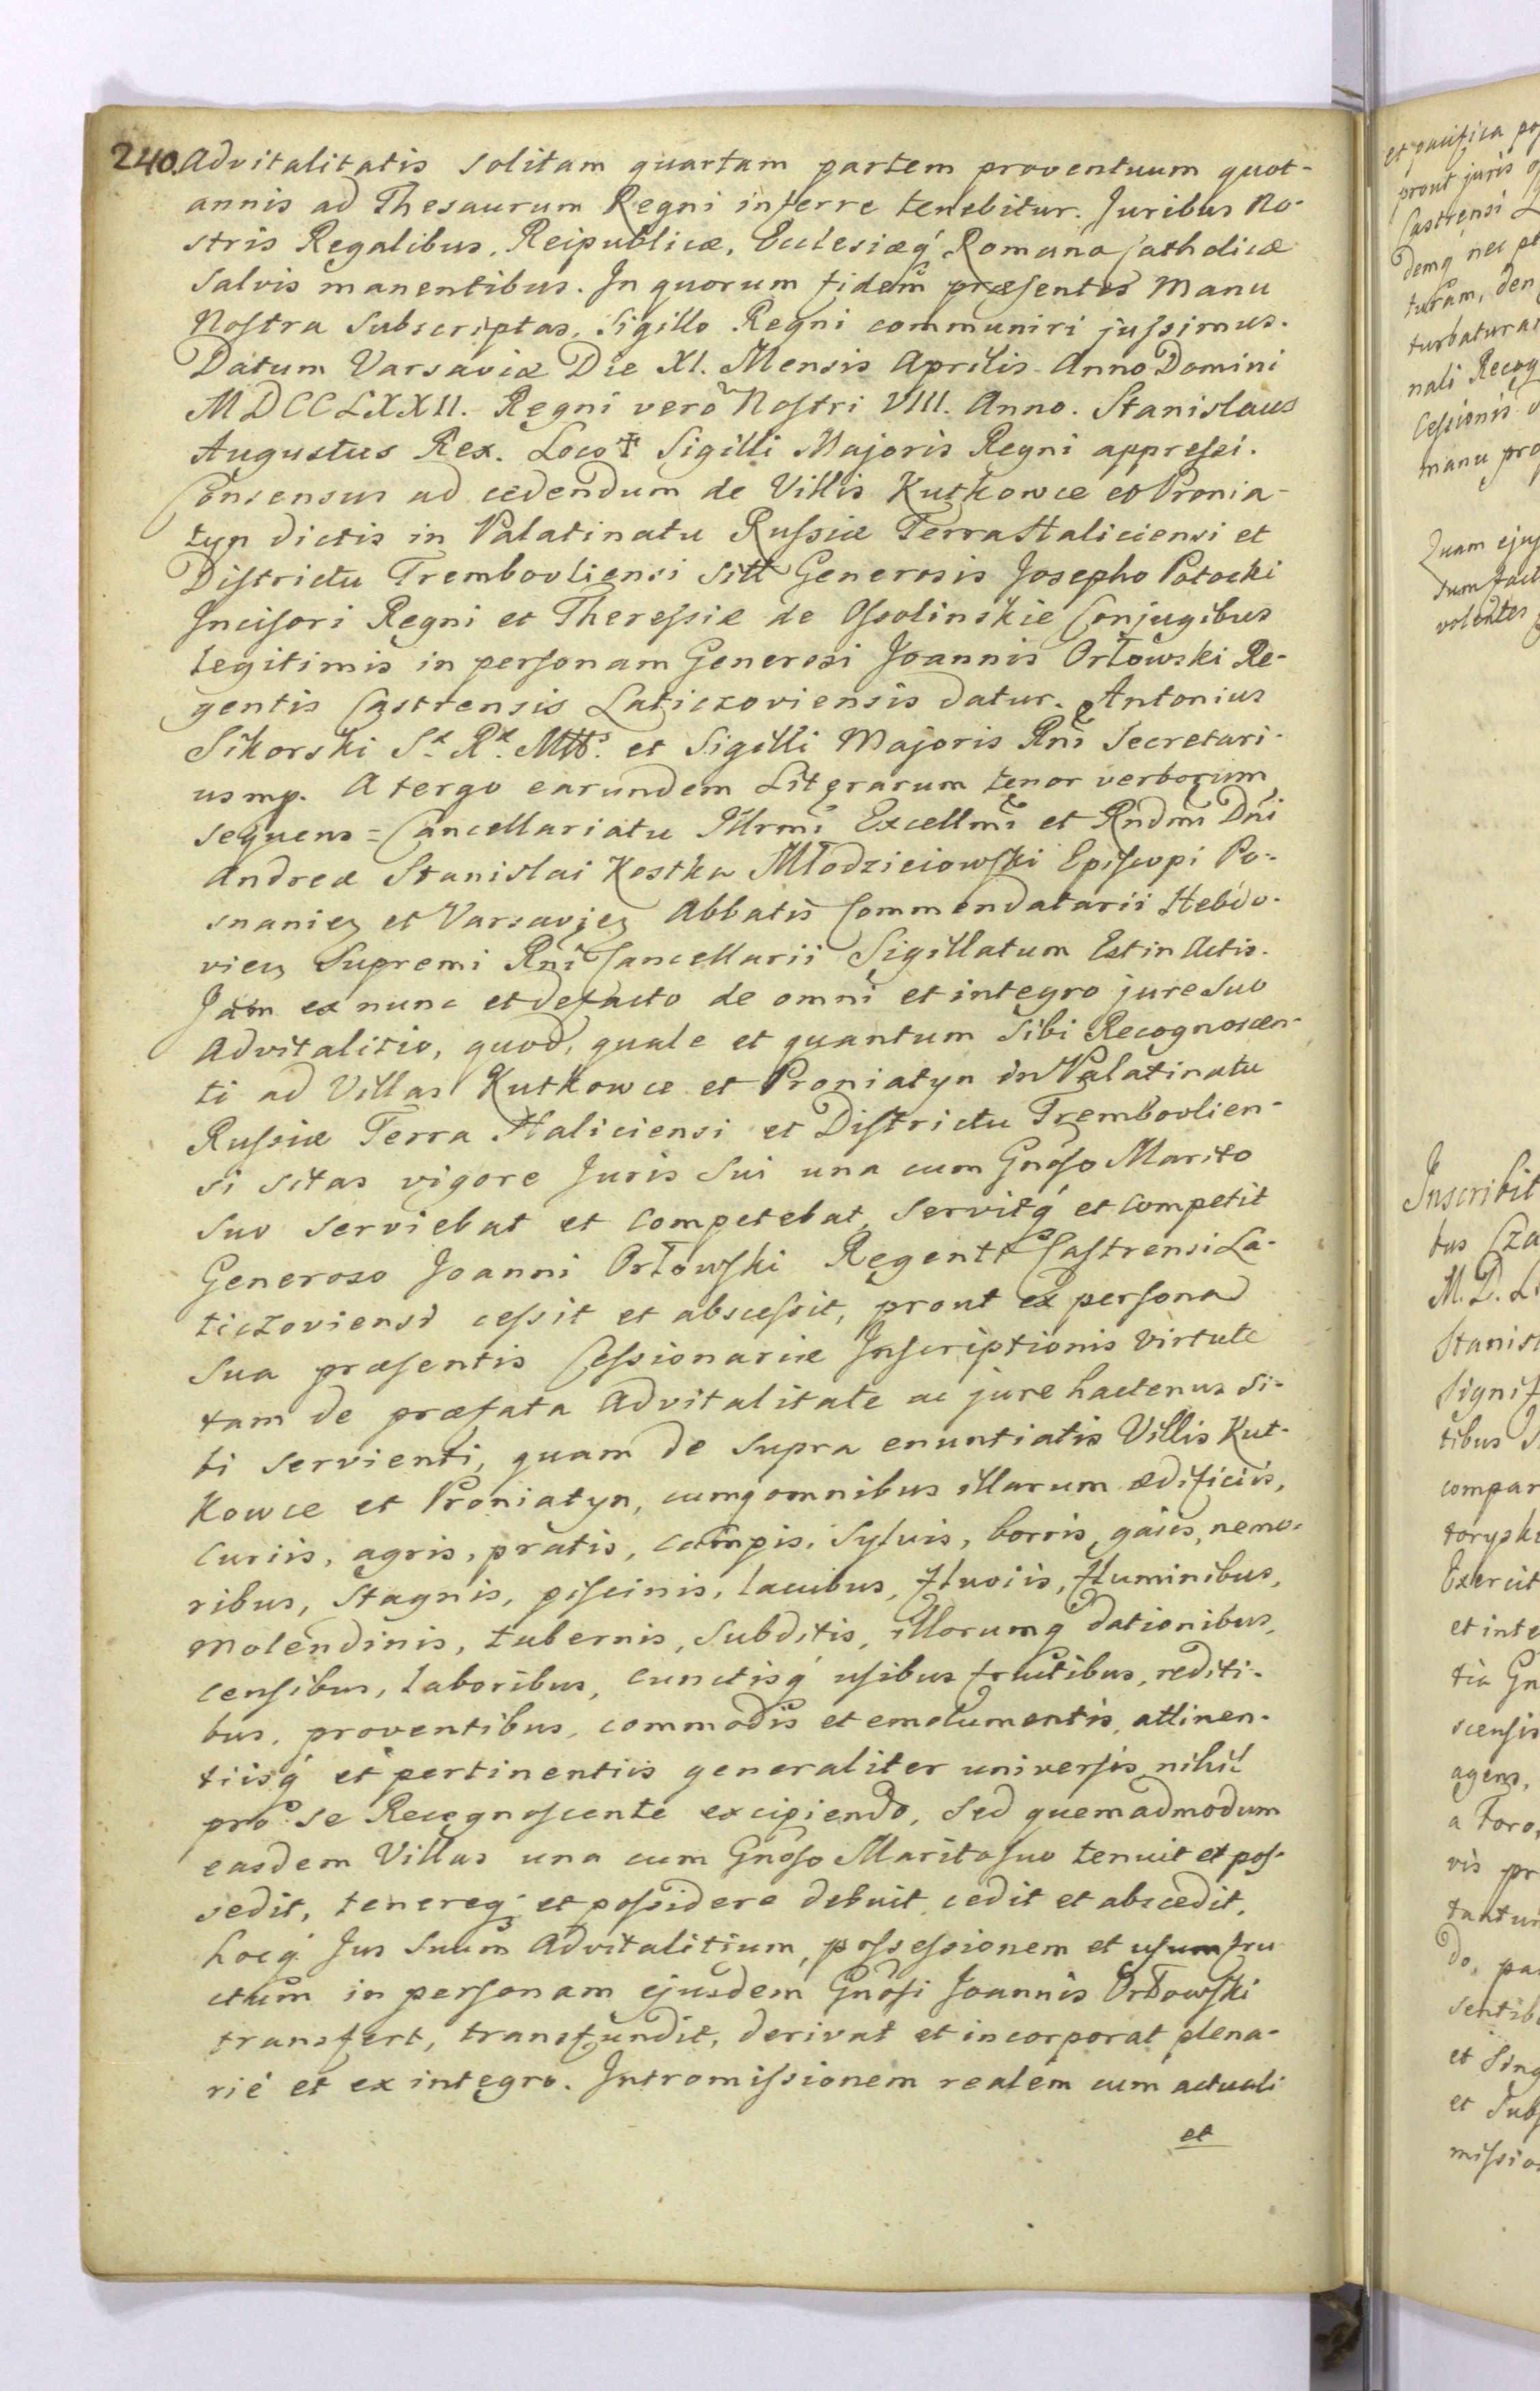 240. Advitalitatis solitam quartam partem proventuum quot-
annis ad Thesaurum Regni inferre tenebitur. Juribus No-
stris Regalibus, Reipublicæ, Ecclesiæq́ Romano Catholicæ
Salvis manentibus. In quorum fidem præsentes Manu
Nostra Subscriptas, Sigillo Regni communiri jussimus.
Datum Varsaviæ Die XI. Mensis Aprilis Anno Domini
MDCCLXXII. Regni verò Nostri VIII. Anno. Stanislaus
Augustus Rex. Loco ✝ Sigilli Majoris Regni appressi.
Consensus ad cedendum de Villis Kutkowce et Pronia-
tyn dictis in Palatinatu Russiæ Terra Haliciensi et
Districtu Trembovliensi Sitt Generosis Josepho Potocki
Incisori Regni et Theressiæ de Ossolinskie Conjugibus
legitimis in personam Generosi Joannis Orłowski Re-
gentis Castrensis Laticzoviensis datur. Antonius
Sikorski Sæ Ræ Mtts. et Sigilli Majoris Rni Secretari-
us mp. A tergo earundem Literarum tenor verborum
sequens = Cancellariatu Illrmi Excellmi et Rndmi Dni
Andreæ Stanislai Kostka Młodzieiowski Episcopi Po-
snaniez et Varsaviez Abbatis Commendatarii Hebdo-
viez Supremi Rni Cancellarii Sigillatum Est in Actis.
Jam ex nunc et defacto de omni et integro jure Suo
Advitalitio, quod, quale et quantum Sibi Recognoscen-
ti ad Villas Kutkowce et Proniatyn in Palatinatu
Russiæ Terra Haliciensi et Districtu Trembovlien-
si sitas vigore Juris Sui una cum Gnoso Marito
Suo serviebat et competebat, servitq́ et competit
Generoso Joanni Orłowski Regenti Castrensi La-
ticzoviensi cessit et abscessit, prout ex persona
Sua præsentis Cessionariæ Inscriptionis virtute
tam de præfata Advitalitate ac jure hactenus Si-
bi servienti, quam de supra enuntiatis Villis Kut-
kowce et Proniatyn, cumq omnibus illarum ædificiis,
curiis, agris, pratis, campis, Sylvis, borris, gaiis, nemo-
ribus, Stagnis, piscinis, lacubus, fluviis, fluminibus,
Molendinis, tabernis, Subditis, illorumq dationibus,
censibus, laboribus, cunctisq́ usibus fructibus, rediti-
bus, proventibus, commodis et emolumentis, attinen-
tiisq́ et pertinentiis generaliter universis nihil
pro se Recognoscente excipiendo, Sed quemadmodum
easdem Villas una cum Gnoso Marito suo tenuit et pos-
sedit, tenereq et possidere debuit, cedit et abscedit,
hocq́ Jus Suum Advitalitium, possessionem et usumfru
ctum in personam ejusdem Gnosi Joannis Orłowski
transfert, transfundit, derivat et incorporat plena-
riè et ex integro. Intromissionem realem cum actuali
et
et pacifica
prout juris
Castrensi
demq nec
turam, den
turbatura
nali Recog
Cessionis
manu pro
Quam ejus
tum fact
volentes
Inscribit
tus Cza
M. D. Li
Stanis
Signif
tibus
compar
toryski
Exercit
et inte
tia Gn
scensis
agens,
a Foro,
vis pr
tantu
do, pa
sentib
et Sing
et Subs
missio